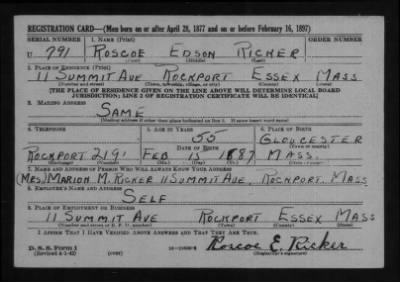 REGISTRATION CARD—(Men born on or after April 28, 1877 and on or before February 16, 1897)
SERIAL NUMBER 1. NAME (Print) ORDER NUMBER
U 791 ROSCOE EDSON RICKER
(First) (Middle) (Last)
2. PLACE OF RESIDENCE (Print)
11 SUMMIT AVE ROCKPORT ESSEX MASS
(Number and street) (Town, township, village, or city) (County) (State)
[THE PLACE OF RESIDENCE GIVEN ON THE LINE ABOVE WILL DETERMINE LOCAL BOARD
JURISDICTION; LINE 2 OF REGISTRATION CERTIFICATE WILL BE IDENTICAL]
3. MAILING ADDRESS
SAME
[Mailing address if other than place indicated on line 2. If same insert word same]
4. TELEPHONE 5. AGE IN YEARS 6. PLACE OF BIRTH
55 GLOUCESTER
DATE OF BIRTH (Town or county)
ROCKPORT 219 FEB 15 1887 MASS.
(Exchange) (Number) (Mo.) (Day) (Yr.) (State or country)
7. NAME AND ADDRESS OF PERSON WHO WILL ALWAYS KNOW YOUR ADDRESS
(MRS) MARION M. RICKER 11 SUMMIT AVE, ROCKPORT, MASS
8. EMPLOYER'S NAME AND ADDRESS
SELF
9. PLACE OF EMPLOYMENT OR BUSINESS
11 SUMMIT AVE ROCKPORT ESSEX MASS
(Number and street or R. F. D. number) (Town) (County) (State)
I AFFIRM THAT I HAVE VERIFIED ABOVE ANSWERS AND THAT THEY ARE TRUE.
D. S. S. Form 1 Roscoe E. Ricker
(Revised 4-1-42) (over) (Registrant's signature)